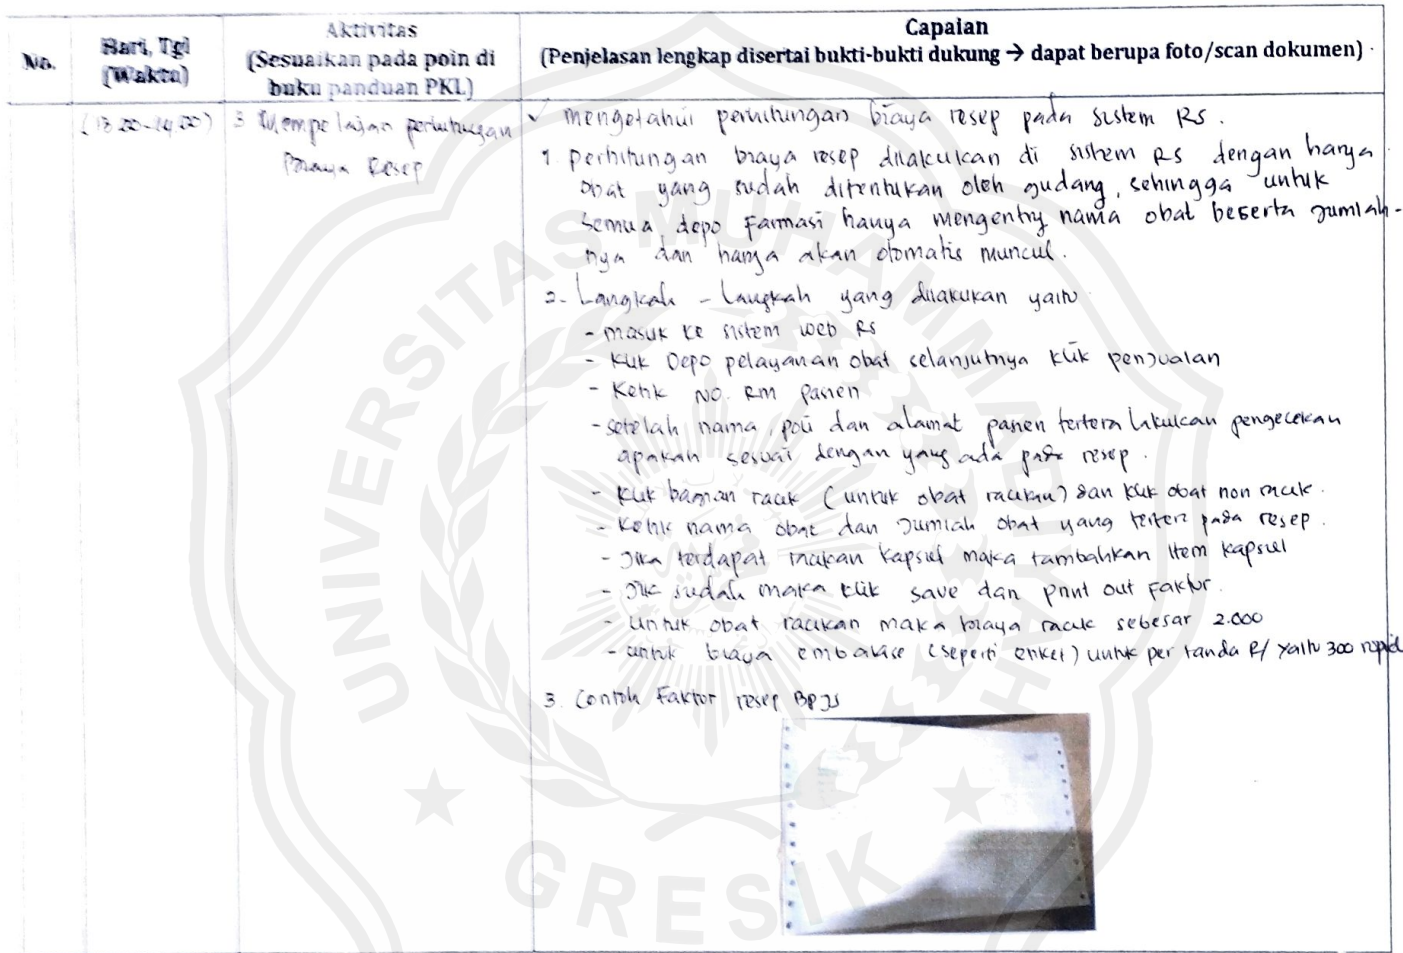 No.
Hari, Tgl
(Waktu)
Aktivitas
(Sesuaikan pada poin di
buku panduan PKL)
Capaian
(Penjelasan lengkap disertai bukti-bukti dukung → dapat berupa foto/scan dokumen)
(13.00-14.00)
3 Mempelajari perhitungan
Biaya Resep
✓ mengetahui perhitungan biaya resep pada sistem RS.
1. perhitungan biaya resep dilakukan di sistem RS dengan harga
obat yang sudah ditentukan oleh gudang, sehingga untuk
semua depo Farmasi hanya mengentry nama obat beserta jumlah-
nya dan harga akan otomatis muncul.
2. Langkah - Langkah yang dilakukan yaitu
- masuk ke sistem web RS
- Klik Depo pelayanan obat selanjutnya klik penjualan
- Ketik NO. RM pasien
- setelah nama, poli dan alamat pasien tertera lakukan pengecekan
apakah sesuai dengan yang ada pada resep.
- Klik bagian racik (untuk obat racikan) dan klik obat non racik.
- Ketik nama obat dan jumlah obat yang tertera pada resep.
- Jika terdapat racikan kapsul maka tambahkan item kapsul
- Jika sudah maka klik save dan print out Faktur.
- Untuk obat racikan maka biaya racik sebesar 2.000
- untuk biaya embalase (seperti etiket) untuk per tanda R/ yaitu 300 rupiah
3. Contoh Faktur resep BPJS
UNIVERSITAS MUHAMMADIYAH
GRESIK